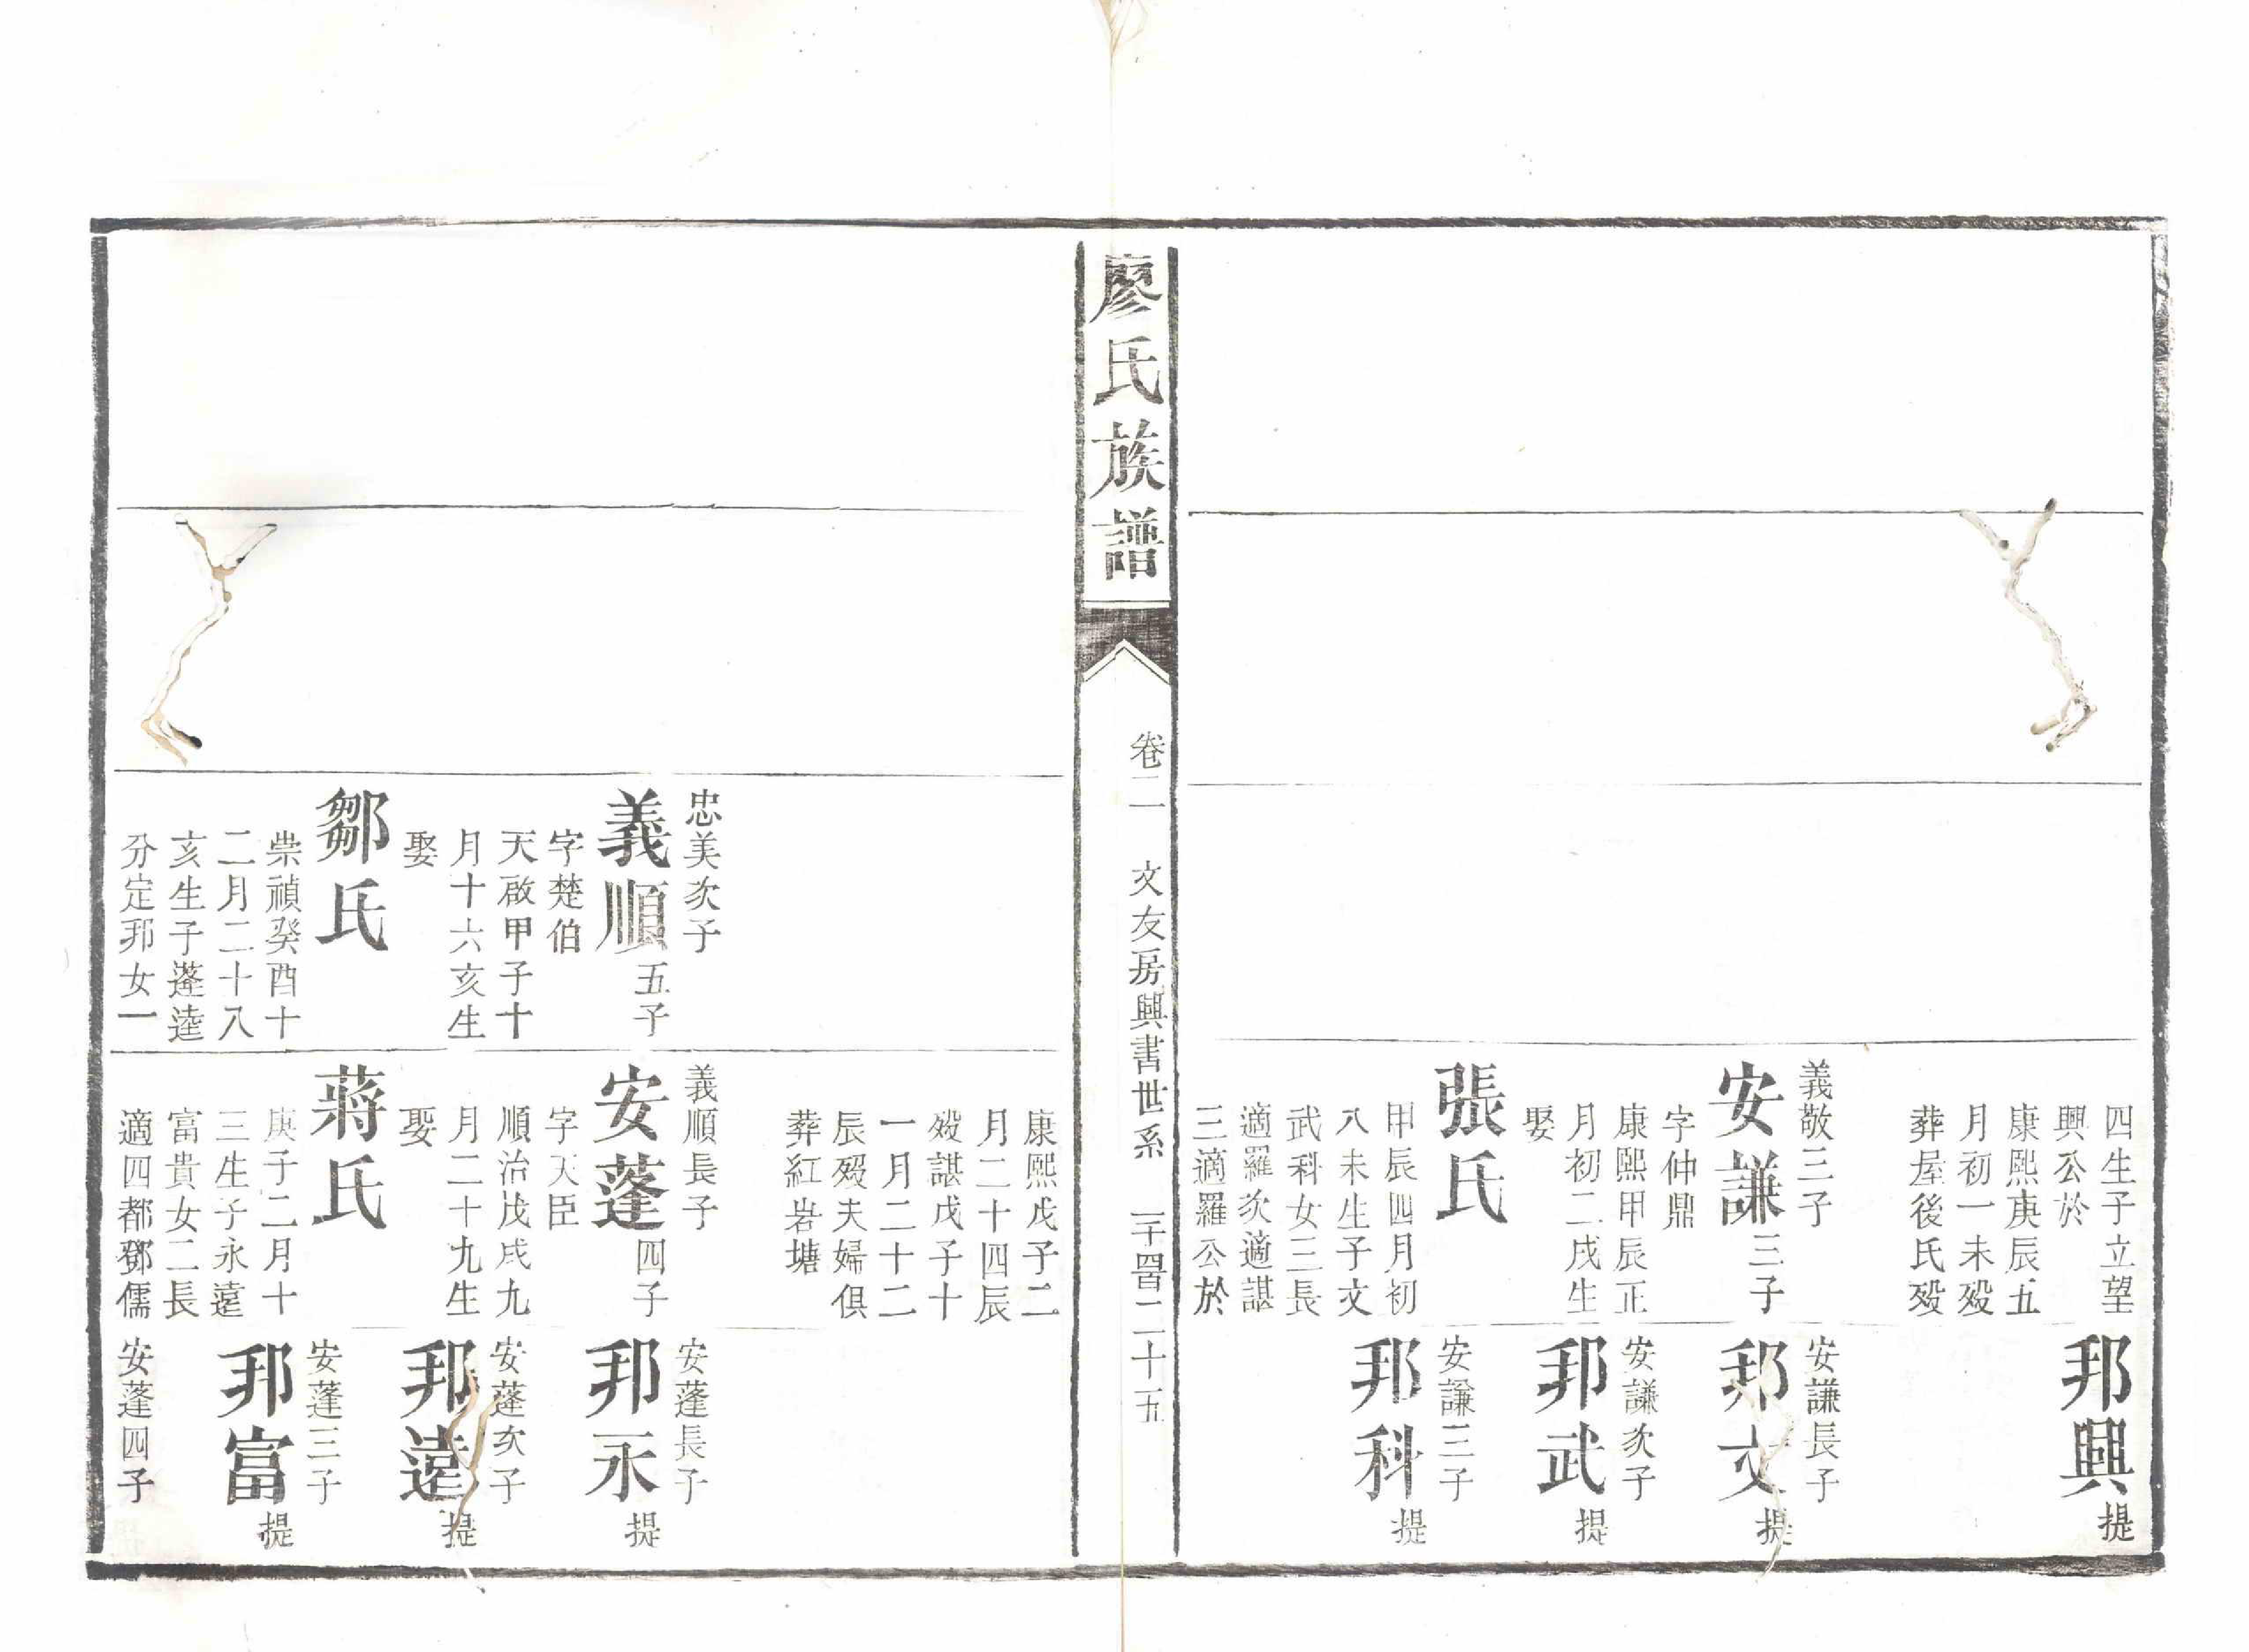 四生子立望
興公於
康熙庚辰五
月初一未歿
葬屋後氏歿
義敬三子
安謙三子
字仲鼎
康熙甲辰正
月初二戌生
娶
張氏
甲辰四月初
八未生子文
武科女三長
適羅次適諶
三適羅公於
邦興提
安謙長子
邦文提
安謙次子
邦武提
安謙三子
邦科提
廖氏族譜
卷二
文友房興書世系
一千四百二十五
忠美次子
義順五子
字楚伯
天啟甲子十
月十六亥生
娶
鄒氏
崇禎癸酉十
二月二十八
亥生子蓬逵
分定邦女一
康熙戊子二
月二十四辰
歿諶戊子十
一月二十二
辰歿夫婦俱
葬紅岩塘
義順長子
安蓬四子
字天臣
順治戊戌九
月二十九生
娶
蔣氏
庚子二月十
三生子永遠
富貴女二長
適四都鄧儒
安蓬長子
邦永提
安蓬次子
邦遠提
安蓬三子
邦富提
安蓬四子